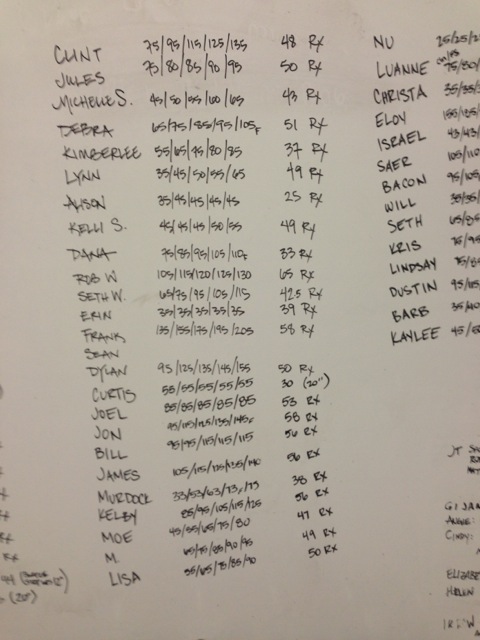 CLINT 75/95/115/125/135 48 Rx
JULES 75/80/85/90/95 50 Rx
MICHELLE S. 45/50/55/60/65 43 Rx
DEBRA 65/75/85/95/105F 51 Rx
KIMBERLEE 55/65/75/80/85 37 Rx
LYNN 35/45/50/55/65 49 Rx
ALISON 35/45/45/45/45 25 Rx
KELLI S. 45/45/45/50/55 49 Rx
DANA 75/85/95/105/110F 33 Rx
ROB W 105/115/120/125/130 65 Rx
SETH W. 65/75/95/105/115 425 Rx
ERIN 35/35/35/35/35 39 Rx
FRANK 135/155/175/195/205 58 Rx
SEAN
DYLAN 95/125/135/145/155 50 Rx
CURTIS 55/55/55/55/55 30 (20")
JOEL 85/85/85/85/85 53 Rx
JON 95/115/125/135/145F 58 Rx
BILL 95/95/115/115/115 56 Rx
JAMES 105/115/125/135/140 56 Rx
MURDOCK 33/53/63/73/73 38 Rx
KELBY 85/95/105/115/125 56 Rx
MOE 45/55/65/75/80 47 Rx
M. 65/75/85/90/95 49 Rx
LISA 55/65/75/85/90 50 Rx
NU 25/25/2
LUANNE 75/80/
CHRISTA 35/35/3
ELOY
ISRAEL 43/43/
SAER 105/110
BACON 95/105
WILL 35/35/
SETH 65/85
KRIS 75/95
LINDSAY 75/8
DUSTIN 95/115
BARB 35/40
KAYLEE 45/5
JT
GI JAN
ANGIE:
CINDY:
ELIZABE
HELEN
(20")